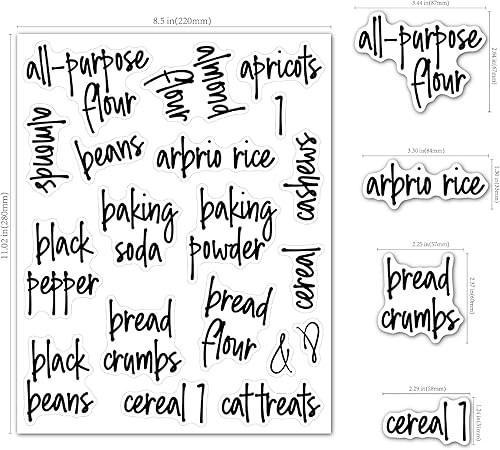 8.5 in(220mm)
11.02 in(280mm)
all-purpose
flour
almond
flour
apricots
1
almonds
beans
arbrio rice
cashews
baking
soda
baking
powder
black
pepper
cereal
bread
crumbs
bread
flour
& D
black
beans
cereal 1
cat treats
3.44 in(87mm)
all-purpose
flour
2.64 in(67mm)
3.30 in(84mm)
arbrio rice
1.30 in(33mm)
2.25 in(57mm)
bread
crumbs
2.29 in(58mm)
cereal 1